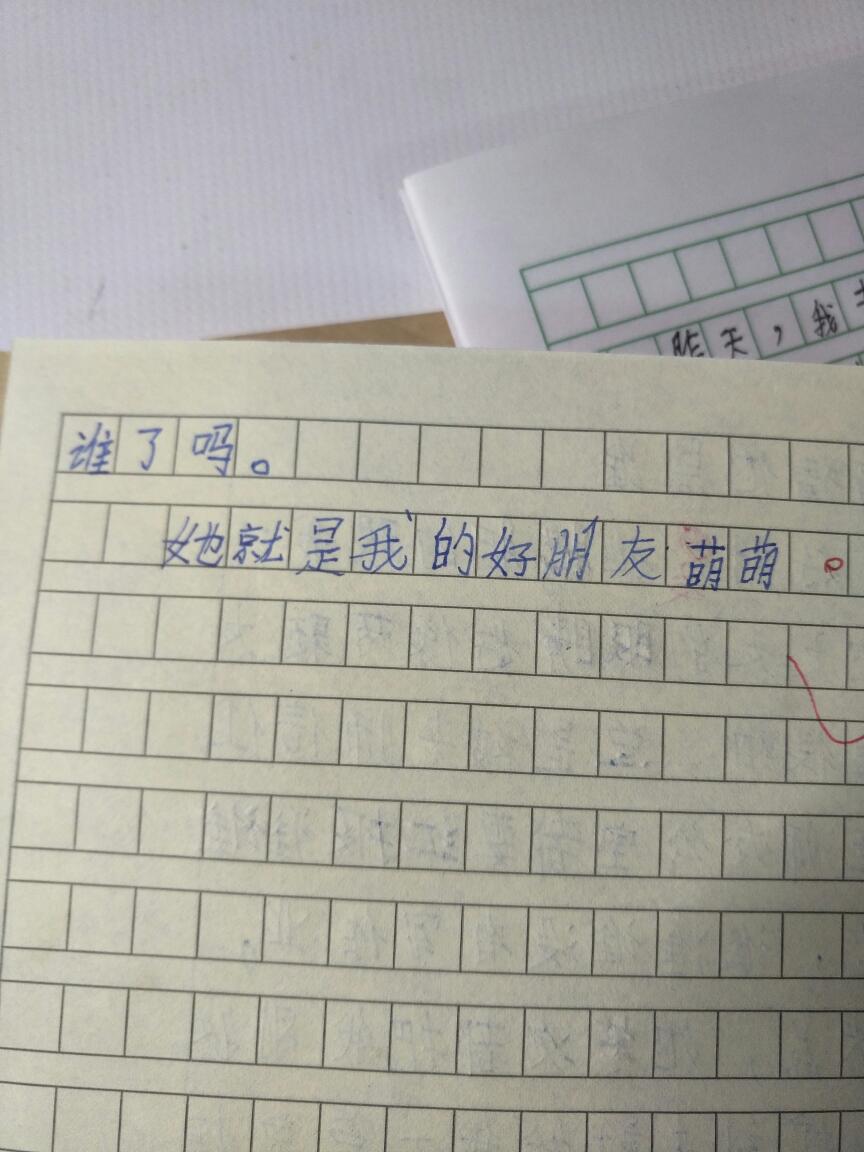 昨天，我
谁了吗。
她就是我的好朋友萌萌。